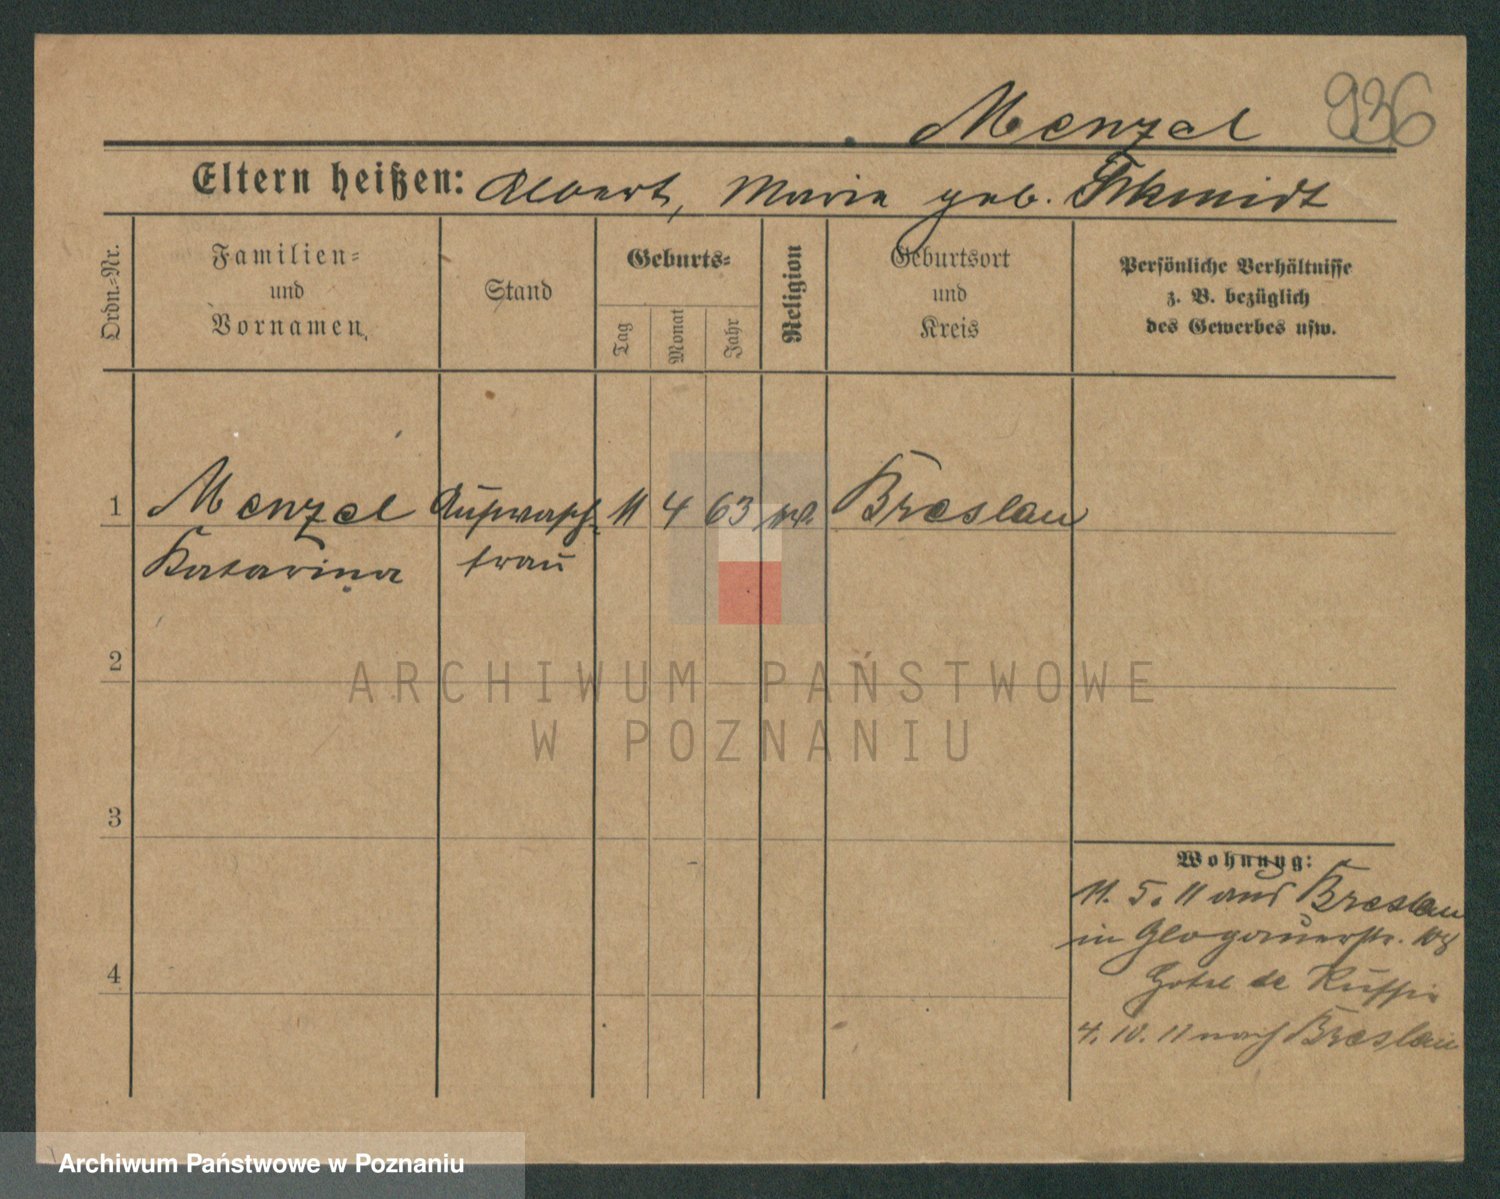 936
Menzel
Eltern heißen: Albert, Marie geb. Schmidt
Ordn.=Nr.
Familien=
und
Vornamen
Stand
Geburts=
Tag
Monat
Jahr
Religion
Geburtsort
und
Kreis
Persönliche Verhältnisse
z. B. bezüglich
des Gewerbes usw.
1 Menzel Aufwasch 11 4 63 Breslau
Katarina frau
2
3
4
Wohnung:
11. 5. 11 aus Breslau
in Glogauerstr. 108
Hotel de Russie
4. 10. 11 nach Breslau
ARCHIWUM PAŃSTWOWE
W POZNANIU
Archiwum Państwowe w Poznaniu